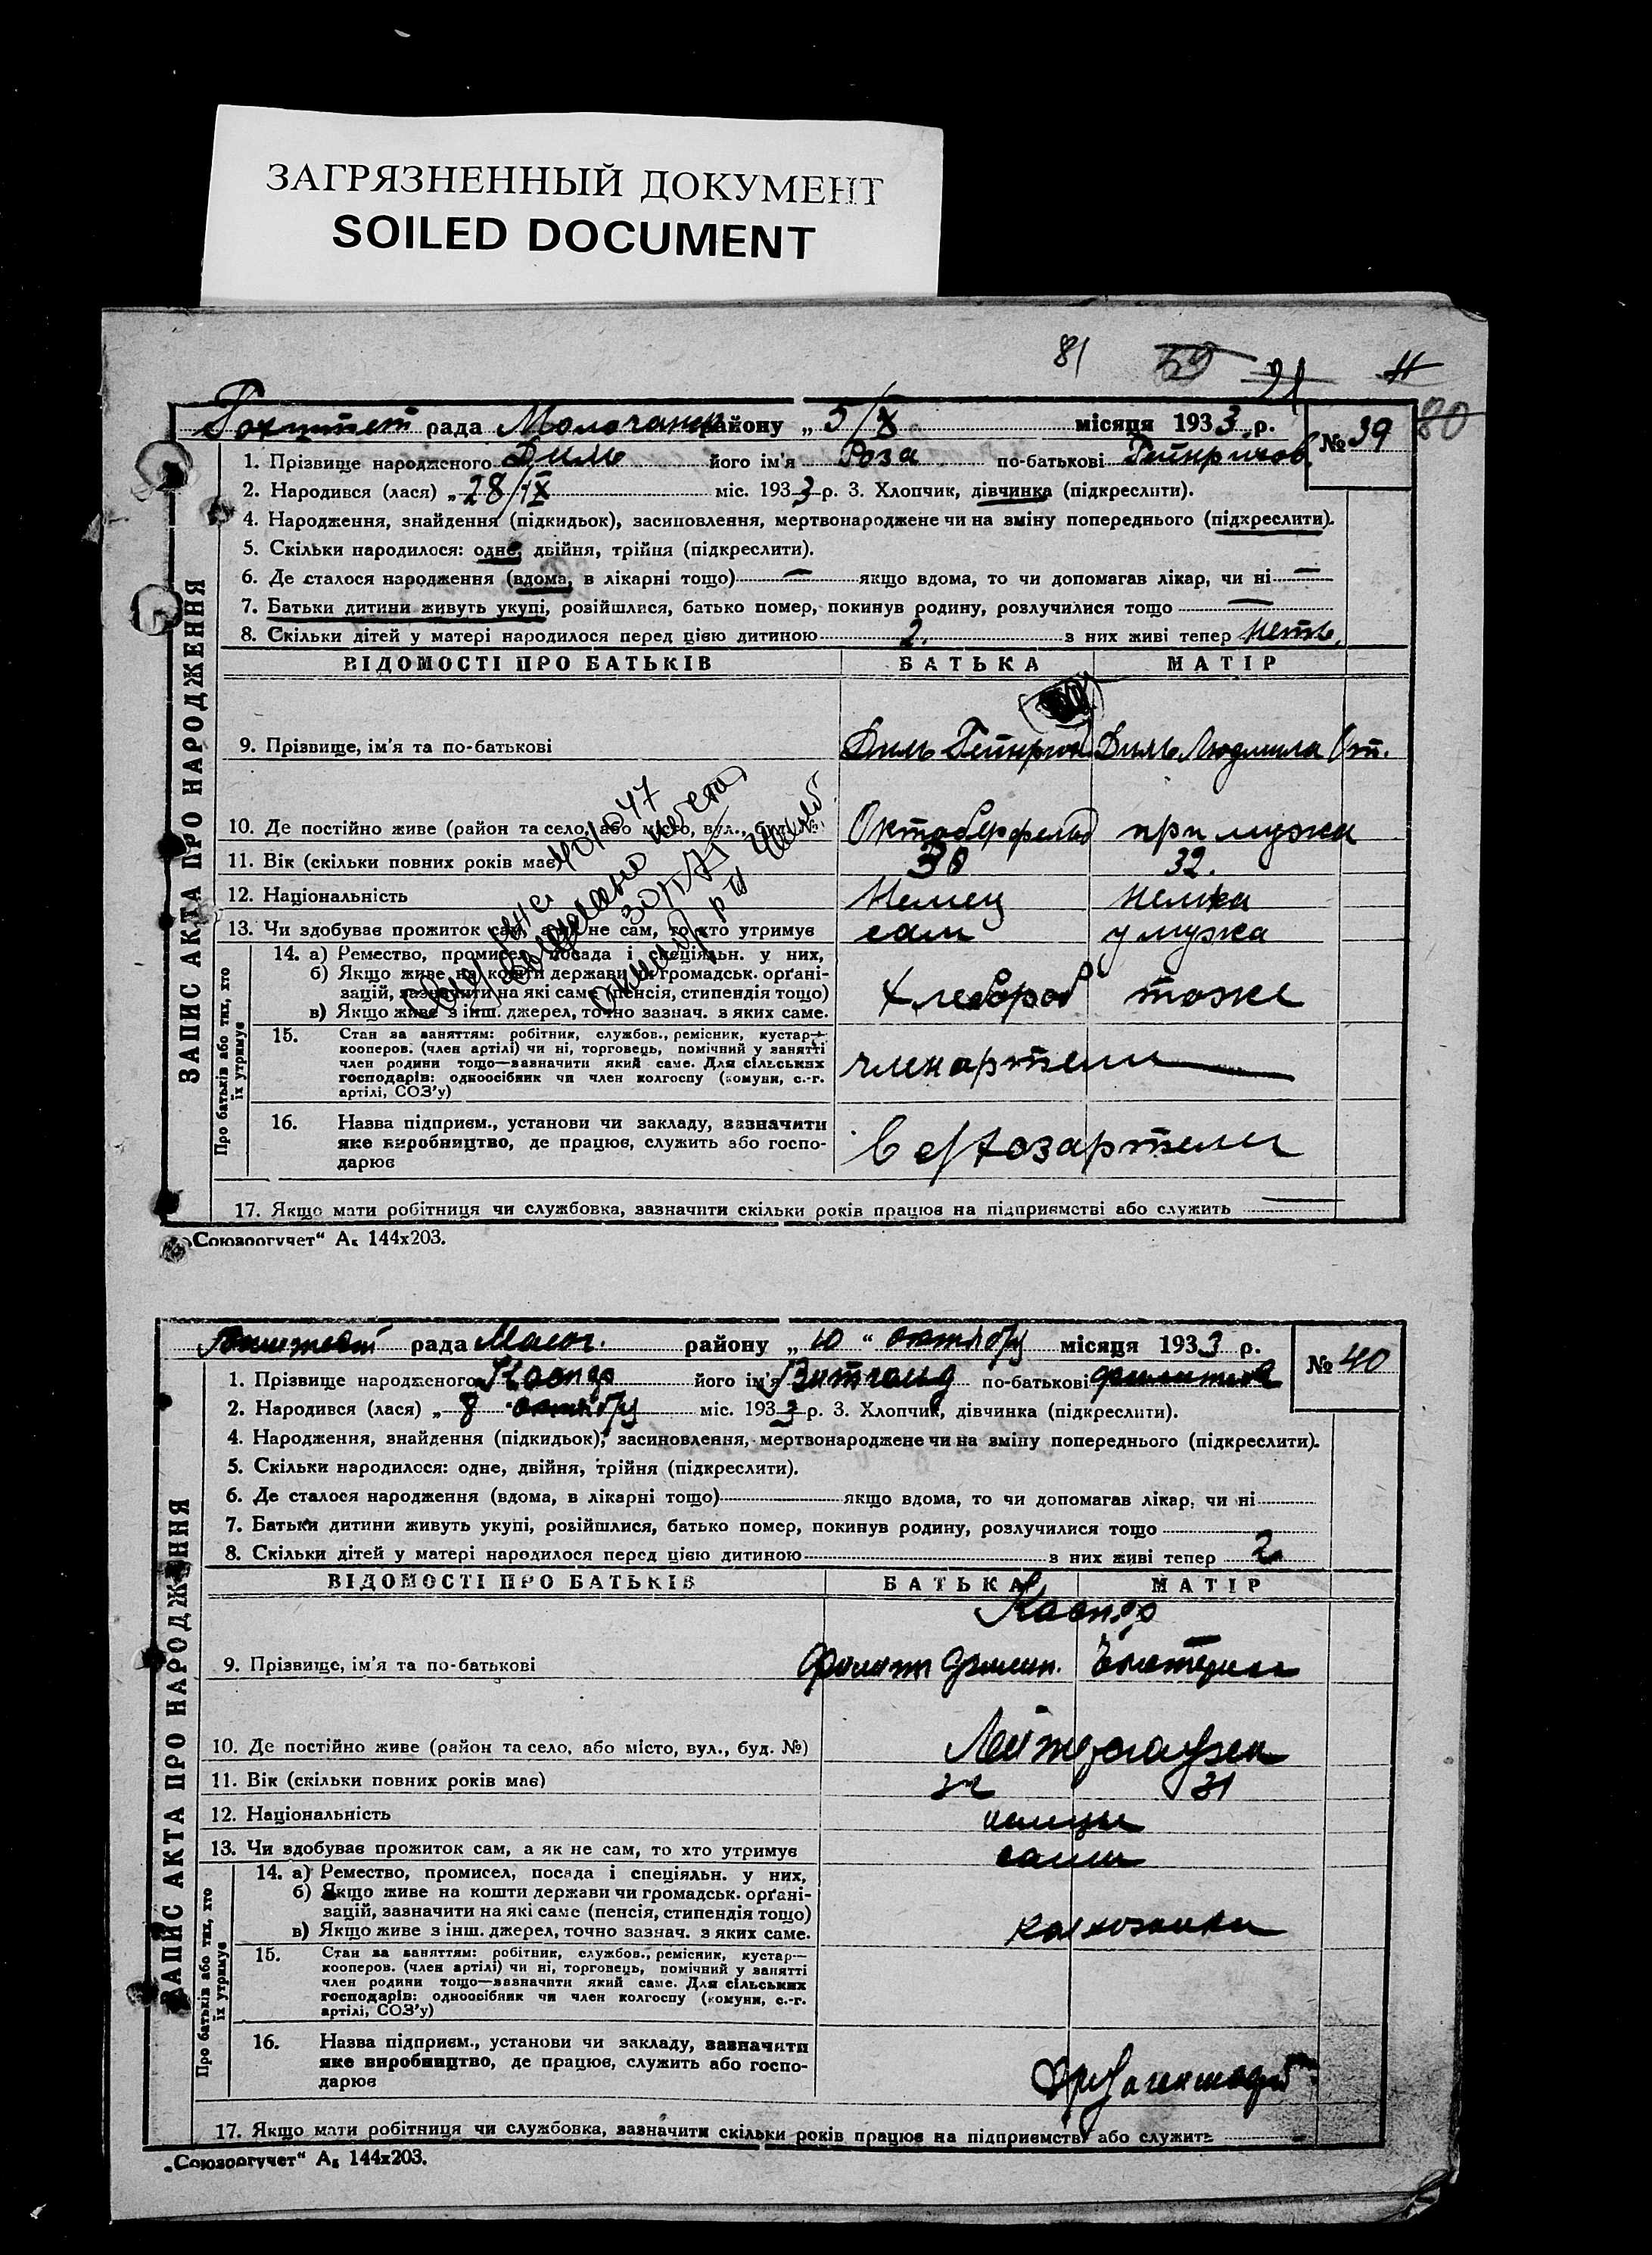 ЗАГРЯЗНЕННЫЙ ДОКУМЕНТ
SOILED DOCUMENT
81
80
рада Молочанск району „ 5/X місяця 1933 р.
№ 39
1. Прізвище народженого Диль його ім'я Роза по-батькові Гейнрихов.
2. Народився (лася) „ 28/IX міс. 1933 р. 3. Хлопчик, дівчинка (підкреслити).
4. Народження, знайдення (підкидьок), засиновлення, мертвонароджене чи на зміну попереднього (підкреслити).
5. Скільки народилося: одне, двійня, трійня (підкреслити).
6. Де сталося народження (вдома, в лікарні тощо) — якщо вдома, то чи допомагав лікар, чи ні —
7. Батьки дитини живуть укупі, розійшлися, батько помер, покинув родину, розлучилися тощо —
8. Скільки дітей у матері народилося перед цією дитиною 2. з них живі тепер
ЗАПИС АКТА ПРО НАРОДЖЕННЯ
ВІДОМОСТІ ПРО БАТЬКІВ БАТЬКА МАТІР
9. Прізвище, ім'я та по-батькові Диль Диль Людмила
10. Де постійно живе (район та село, або місто, вул., буд. №) Октоберфельд при мужа
11. Вік (скільки повних років має) 30 32.
12. Національність Немец Немка
13. Чи здобував прожиток сам, а як не сам, то хто утримує сам у мужа
Про батьків або тих, хто їх утримує
14. а) Ремество, промисел, посада і спеціяльн. у них,
б) Якщо живе на кошти держави чи громадськ. орґані-
зацій, зазначити на які саме (пенсія, стипендія тощо) Хлебороб тоже
в) Якщо живе з інш. джерел, точно зазнач. з яких саме.
15. Стан за заняттям: робітник, службов., ремісник, кустар—
кооперов. (член артілі) чи ні, торговець, помічний у занятті
член родини тощо—зазначити який саме. Для сільських член артели
господарів: одноосібник чи член колгоспу (комуни, с.-г.
артілі, СОЗ'у)
16. Назва підприєм., установи чи закладу, зазначити
яке виробництво, де працює, служить або госпо- в с/хозартели
дарює
17. Якщо мати робітниця чи службовка, зазначити скільки років працює на підприємстві або служить
„Союзоргучет“ А₅ 144х203.
рада Молоч. району „ 10 “ октября місяця 1933 р.
№ 40
1. Прізвище народженого його ім'я по-батькові
2. Народився (лася) „ 8 октября міс. 1933 р. 3. Хлопчик, дівчинка (підкреслити).
4. Народження, знайдення (підкидьок), засиновлення, мертвонароджене чи на зміну попереднього (підкреслити).
5. Скільки народилося: одне, двійня, трійня (підкреслити).
6. Де сталося народження (вдома, в лікарні тощо) якщо вдома, то чи допомагав лікар, чи ні
7. Батьки дитини живуть укупі, розійшлися, батько помер, покинув родину, розлучилися тощо
8. Скільки дітей у матері народилося перед цією дитиною з них живі тепер 2
ЗАПИС АКТА ПРО НАРОДЖЕННЯ
ВІДОМОСТІ ПРО БАТЬКІВ БАТЬКА МАТІР
9. Прізвище, ім'я та по-батькові
10. Де постійно живе (район та село, або місто, вул., буд. №)
11. Вік (скільки повних років має) 31
12. Національність немцы
13. Чи здобував прожиток сам, а як не сам, то хто утримує сами
Про батьків або тих, хто їх утримує
14. а) Ремество, промисел, посада і спеціяльн. у них,
б) Якщо живе на кошти держави чи громадськ. орґані-
зацій, зазначити на які саме (пенсія, стипендія тощо)
в) Якщо живе з інш. джерел, точно зазнач. з яких саме.
15. Стан за заняттям: робітник, службов., ремісник, кустар—
кооперов. (член артілі) чи ні, торговець, помічний у занятті
член родини тощо—зазначити який саме. Для сільських
господарів: одноосібник чи член колгоспу (комуни, с.-г.
артілі, СОЗ'у)
16. Назва підприєм., установи чи закладу, зазначити
яке виробництво, де працює, служить або госпо-
дарює
17. Якщо мати робітниця чи службовка, зазначити скільки років працює на підприємстві або служить
„Союзоргучет“ А₅ 144х203.